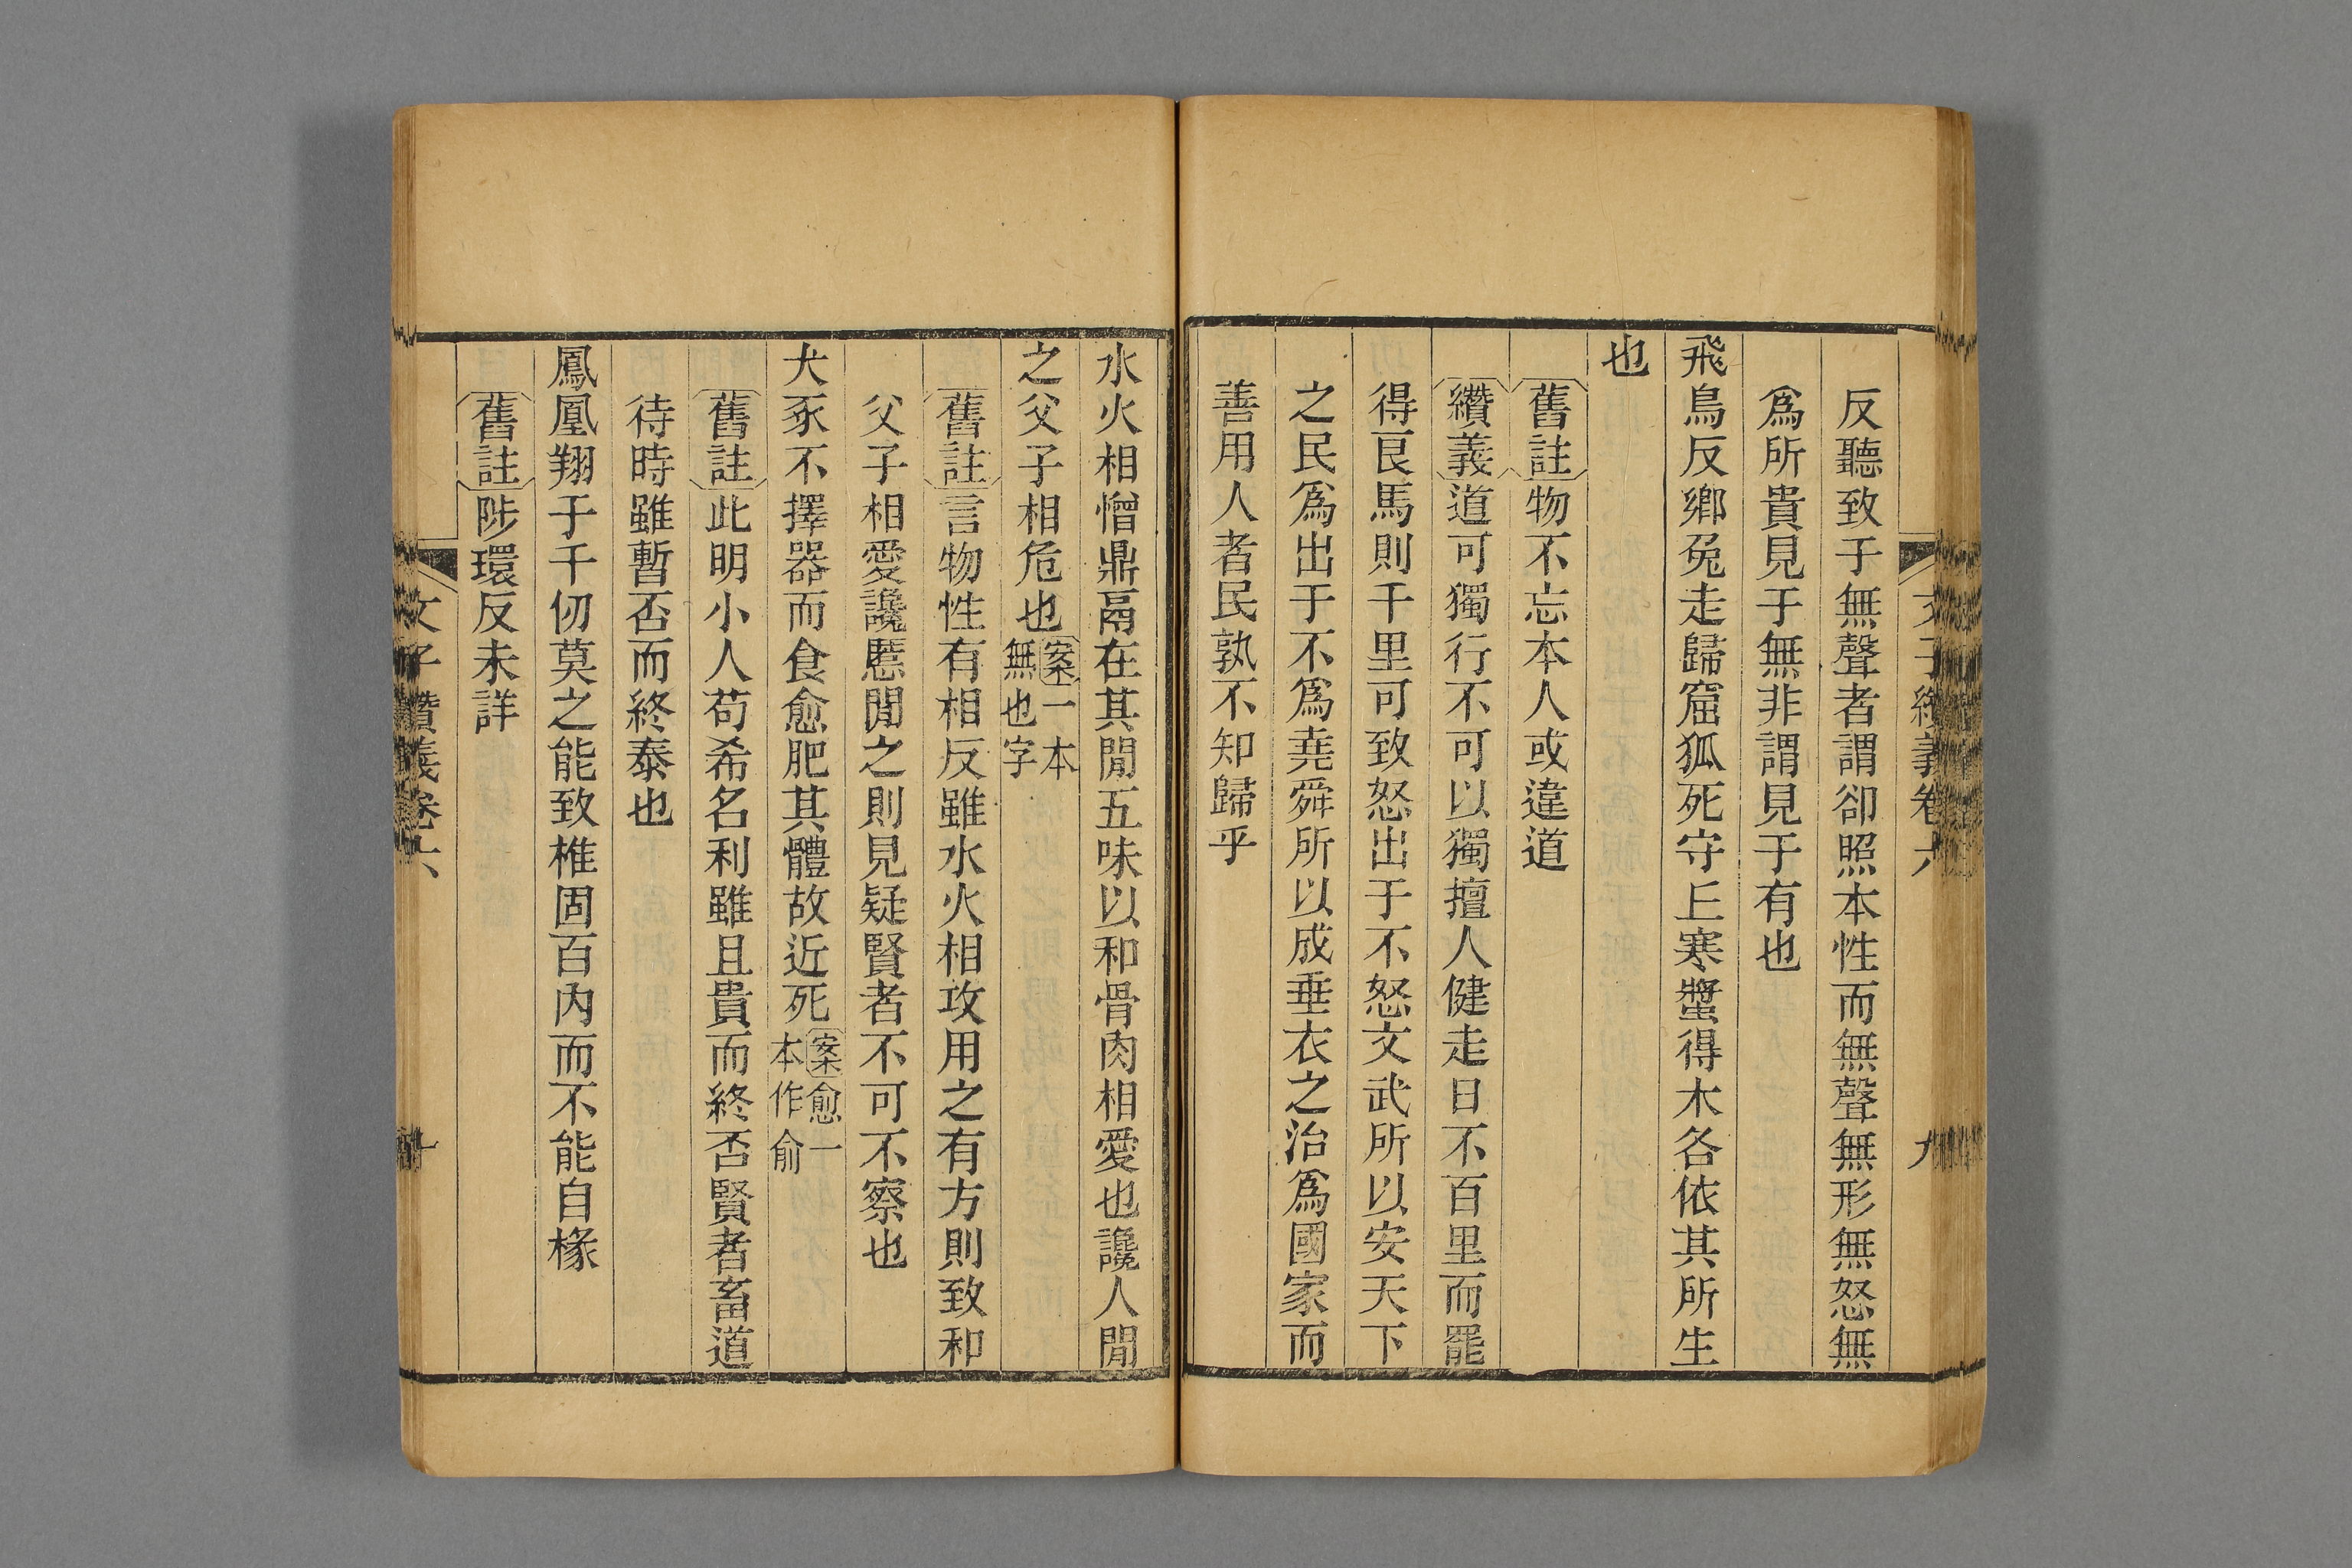 反聽致于無聲者謂卻照本性而無聲無形無怒無
爲所貴見于無非謂見于有也
飛鳥反鄉兔走歸窟狐死守丘寒螿得木各依其所生
也
舊註物不忘本人或違道
纘義道可獨行不可以獨擅人健走日不百里而罷
得良馬則千里可致怒出于不怒文武所以安天下
之民爲出于不爲堯舜所以成垂衣之治爲國家而
善用人者民孰不知歸乎
水火相憎鼎鬲在其閒五味以和骨肉相愛也讒人閒
之父子相危也案一本無也字
舊註言物性有相反雖水火相攻用之有方則致和
父子相愛讒慝閒之則見疑賢者不可不察也
犬豕不擇器而食愈肥其體故近死案愈一本作俞
舊註此明小人苟希名利雖且貴而終否賢者畜道
待時雖暫否而終泰也
鳳凰翔于千仞莫之能致椎固百內而不能自椽
舊註陟環反未詳
文子纘義卷六